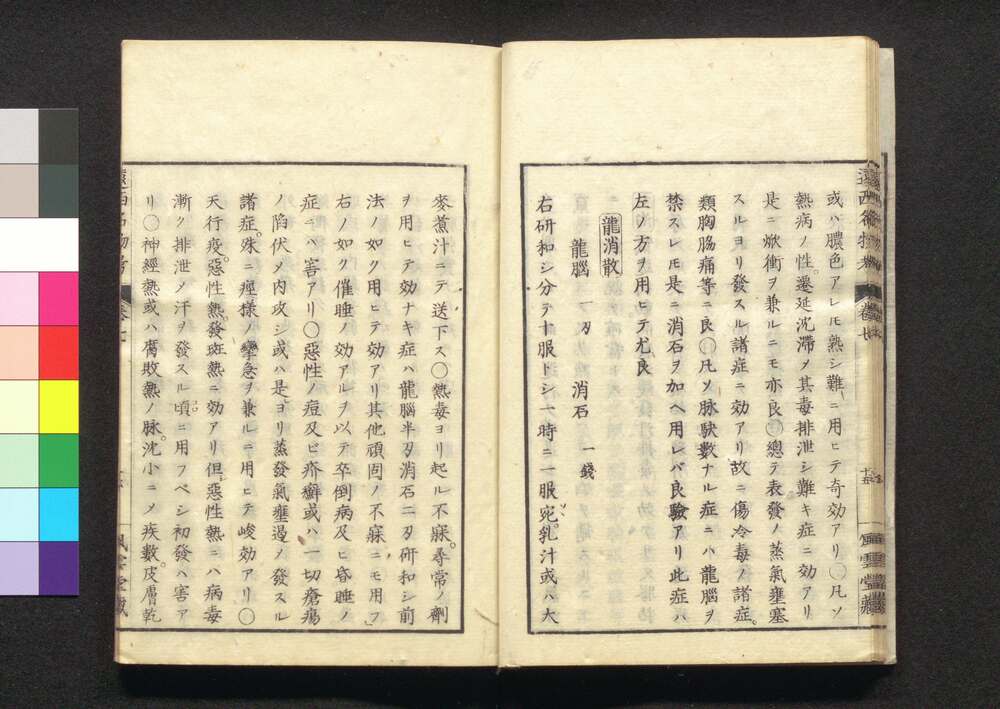 或ハ膿色アレ𪜈熟シ難ニ用ヒテ奇効アリ〇凡ソ
熱病ノ性遷延沈滯〆其毒排泄シ難キ症ニ効アリ
是ニ焮衝ヲ兼ルニモ亦良〇總テ表發ノ蒸氣壅塞
スルヨリ發スル諸症ニ効アリ故ニ傷冷毒ノ諸症。
類胸脇痛等ニ良〇凡ソ脉駃數ナル症ニハ龍腦ヲ
禁スレ𪜈是ニ消石ヲ加ヘ用レバ良驗アリ此症ハ
左ノ方ヲ用ヒテ尤良
龍消散
龍腦 一刄 消石 一錢
右研和シ分テ十服トシ一時ニ一服宛。乳汁或ハ大
麥煮汁ニテ送下ス〇熱毒ヨリ起ル不寐。尋常ノ劑
ヲ用ヒテ効ナキ症ハ龍腦半刄消石二刄研和シ前
法ノ如ク用ヒテ効アリ其他頑固ノ不寐ニモ用フ
右ノ如ク催睡ノ効アルヲ以テ卒倒病及ヒ昏睡ノ
症ニハ害アリ〇惡性ノ痘及ビ疥癬或ハ一切瘡瘍
ノ陷伏〆内攻シ或ハ是ヨリ蒸發氣壅遏〆發スル
諸症。殊ニ痙様ノ攣急ヲ兼ルニ用ヒテ峻効アリ〇
天行疫。惡性熱。發斑熱ニ効アリ但。惡性熱ニハ病毒
漸ク排泄〆汗ヲ發スル頃ニ用フベシ初發ハ害ア
リ〇神經熱或ハ腐敗熱ノ脉。沈小ニ〆疾數。皮膚乾